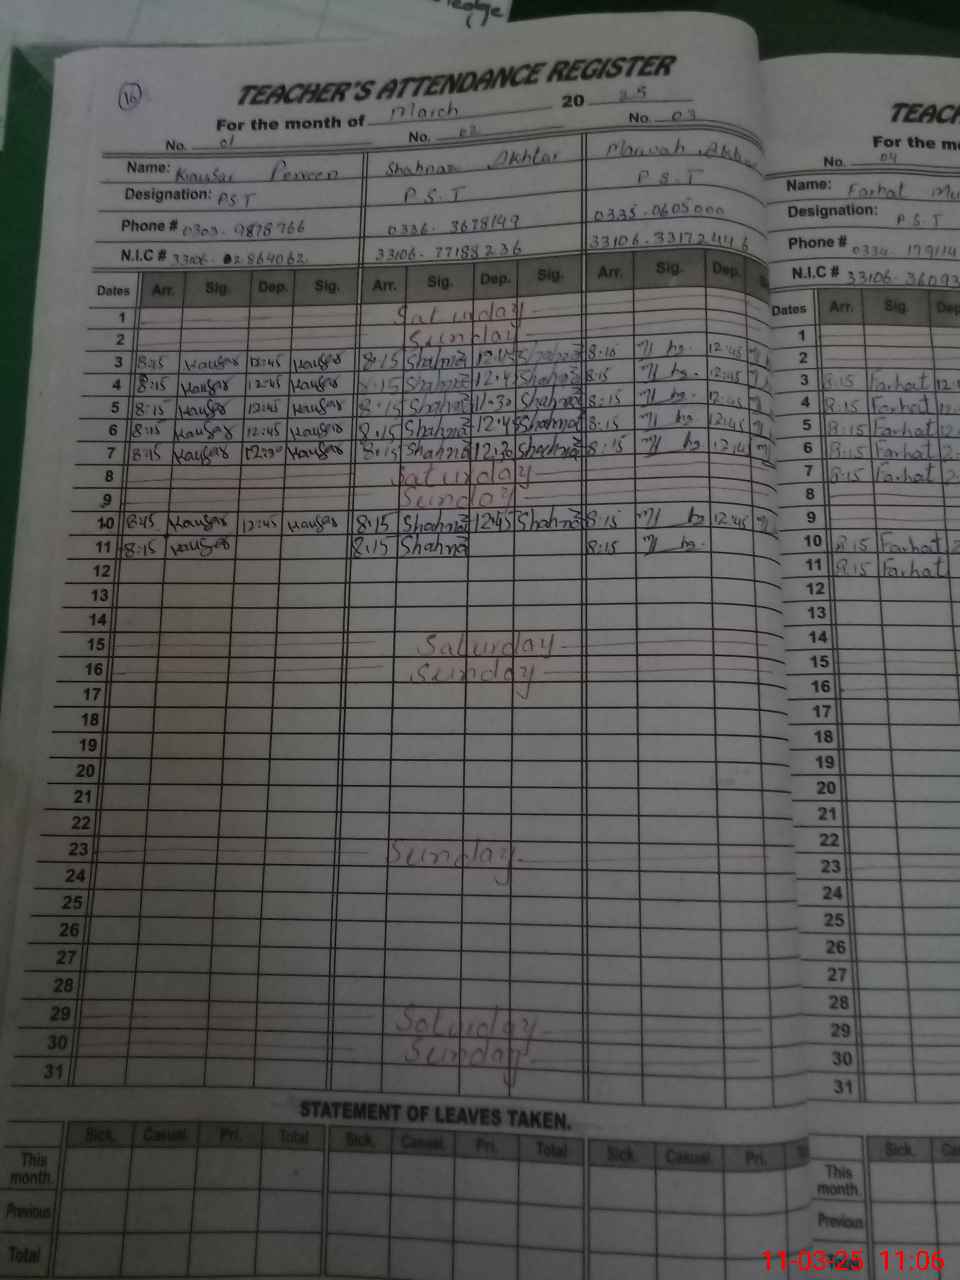 ledge
16
TEACHER'S ATTENDANCE REGISTER
For the month of March 20 25
No. 01 No. 02 No. 03
Name: Kausar Perveen Shahnaz Akhtar
Designation: P.S.T P.S.T P S T
Phone # 0303-9878766 0336-3678149 0335-0605000
N.I.C # 33106- 02864062 33106-77188236 33106-33172446
Dates Arr. Sig. Dep. Sig. Arr. Sig. Dep. Sig. Arr. Sig. Dep.
1 Saturday
2 Sunday
3 8:15 Kausar 12:45 Kausar 8:15 Shahnaz 12:45 Shahnaz 8:15 12:45
4 8:15 Kausar 12:45 Kausar 8:15 Shahnaz 12:45 Shahnaz 8:15 12:45
5 8:15 Kausar 12:45 Kausar 8:15 Shahnaz 11:30 Shahnaz 8:15 12:45
6 8:15 Kausar 12:45 Kausar 8:15 Shahnaz 12:45 Shahnaz 8:15 12:45
7 8:15 Kausar 12:30 Kausar 8:15 Shahnaz 12:30 Shahnaz 8:15 12:45
8 Saturday
9 Sunday
10 8:15 Kausar 12:45 Kausar 8:15 Shahnaz 12:45 Shahnaz 8:15 12:45
11 8:15 Kausar 8:15 Shahnaz 8:15
12
13
14
15 Saturday
16 Sunday
17
18
19
20
21
22
23 Sunday
24
25
26
27
28
29 Saturday
30 Sunday
31
STATEMENT OF LEAVES TAKEN.
Sick. Casual. Pri. Total Sick. Casual. Pri. Total Sick. Casual. Pri.
This month.
Previous
Total
TEAC
For the m
No. 04
Name: Farhat
Designation: P.S.T
Phone # 0334-179114
N.I.C # 33106-36093
Dates Arr. Sig. Dep
1
2
3 8:15 Farhat
4 8:15 Farhat
5 8:15 Farhat
6 8:15 Farhat
7 8:15 Farhat
8
9
10 8:15 Farhat
11 8:15 Farhat
12
13
14
15
16
17
18
19
20
21
22
23
24
25
26
27
28
29
30
31
Sick. Ca
This month.
Previous
11-03-25 11:06